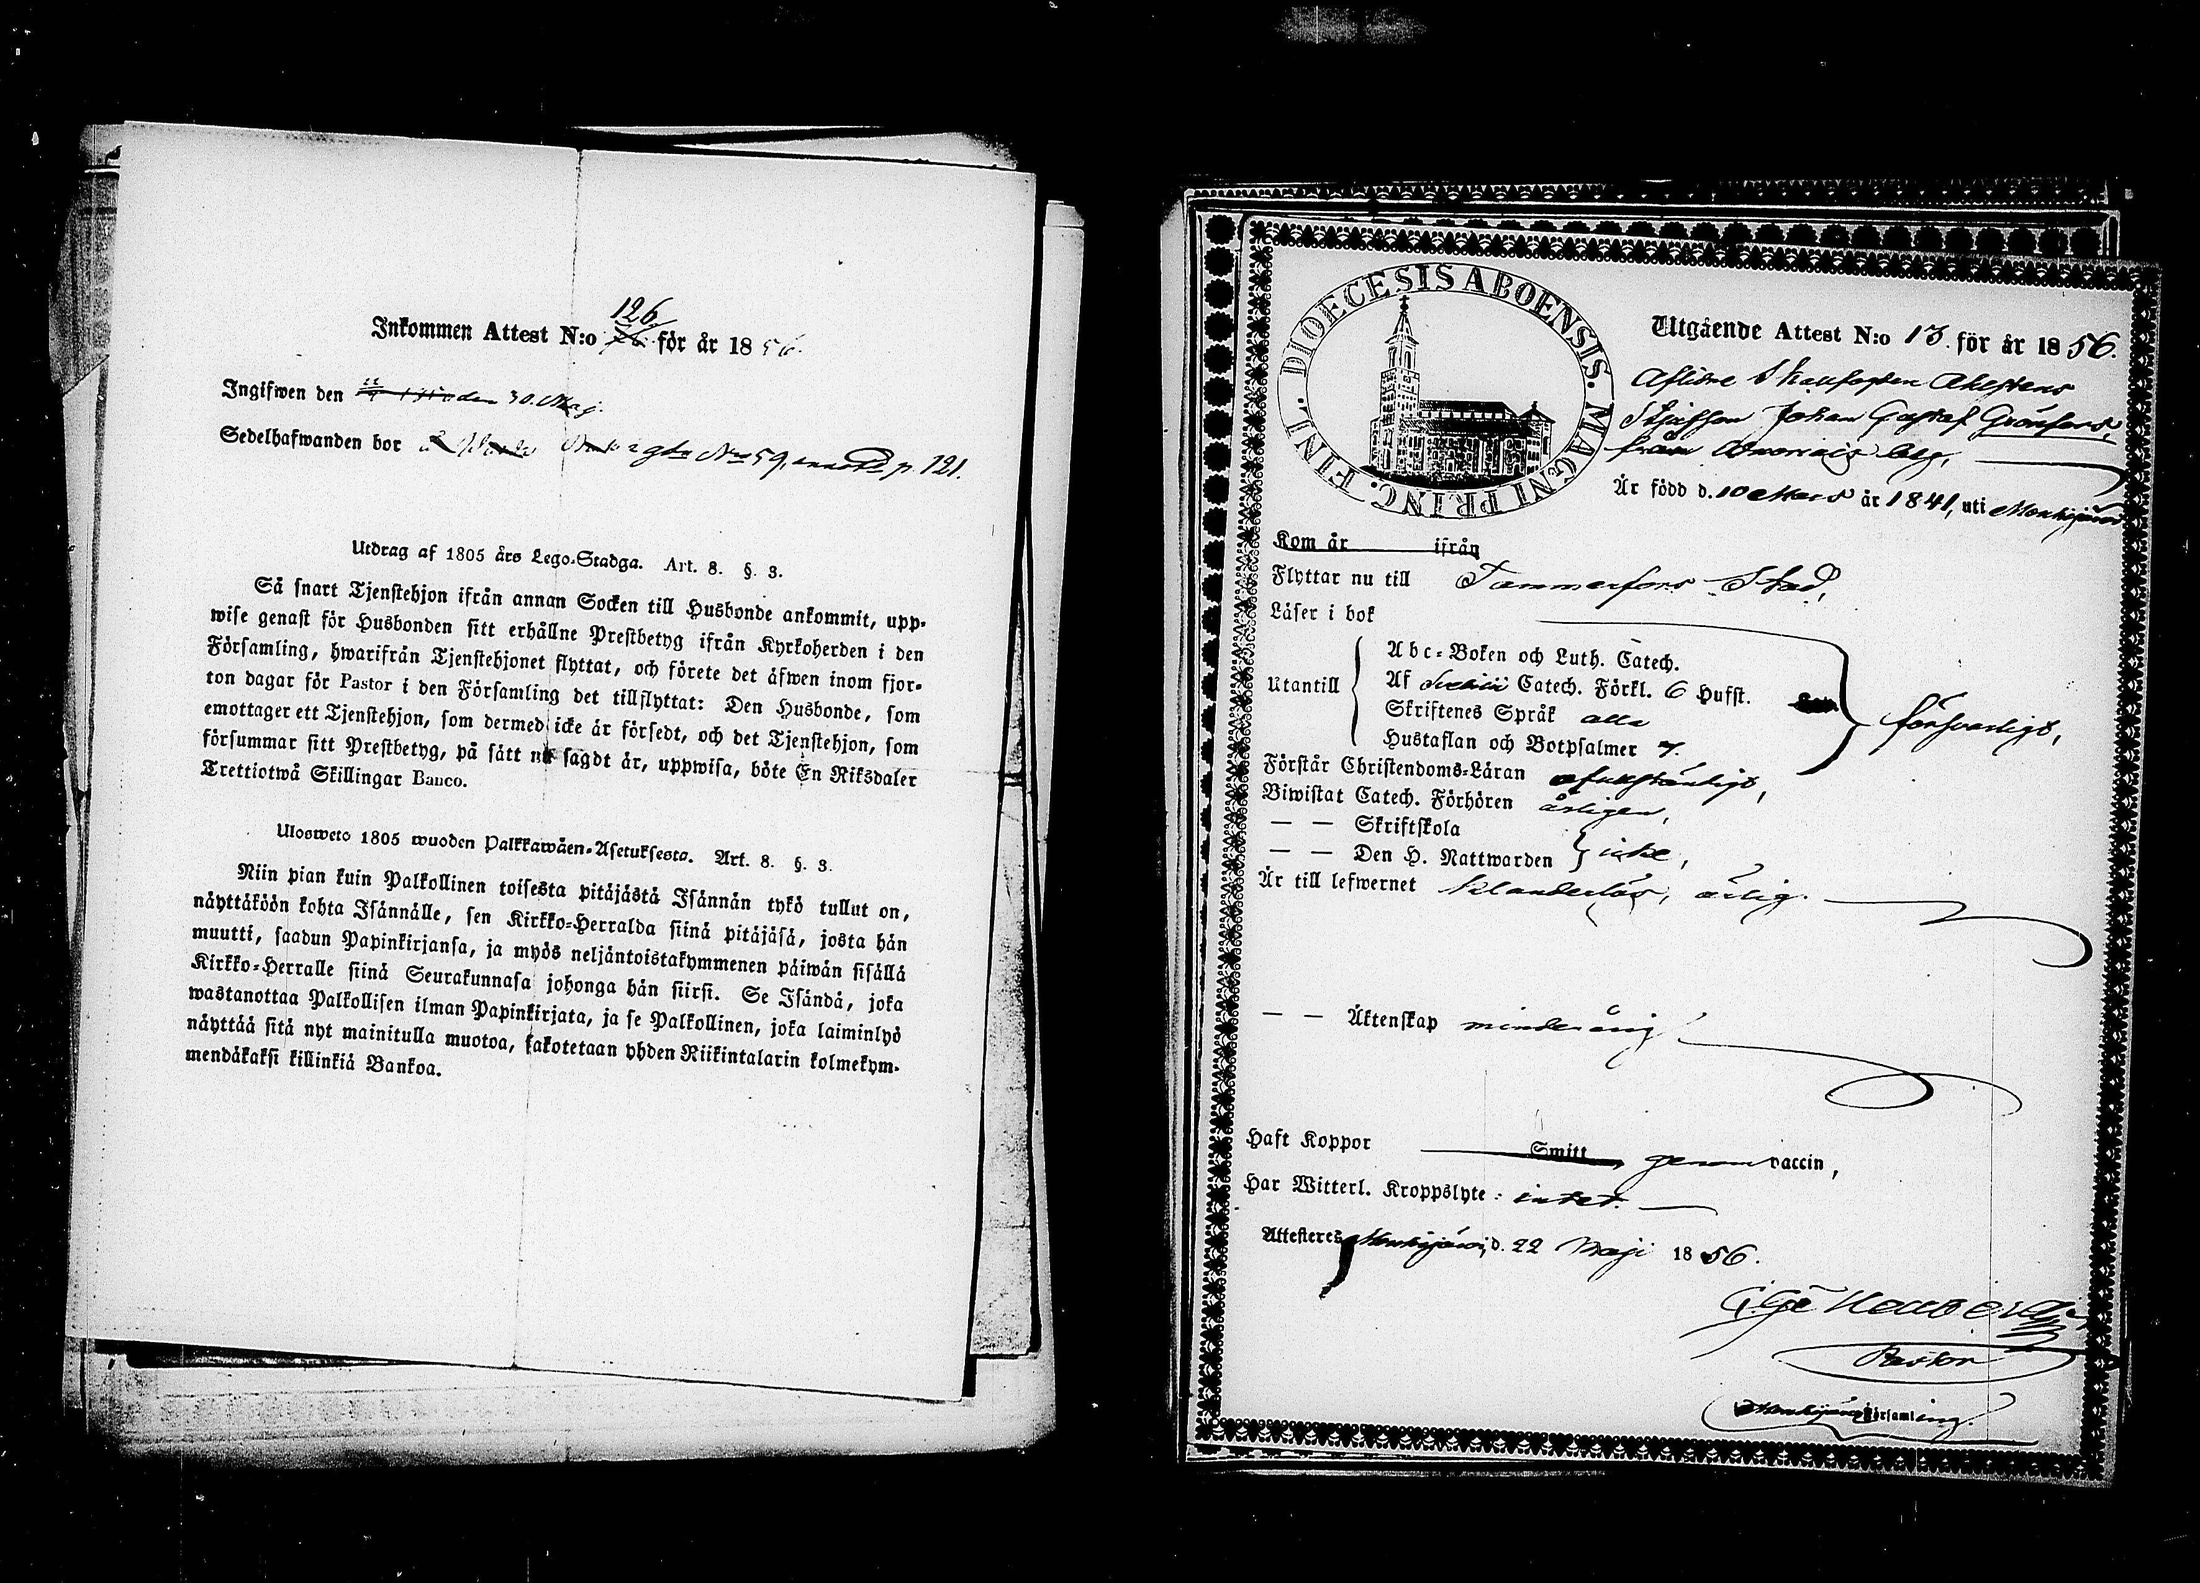 126.
Inkommen Attest N:o för år 1856.
Ingifwen den 30. Maj.
Sedelhafwanden bor gln No 59, p. 121.
Utdrag af 1805 års Lego-Stadga. Art. 8. §. 3.
Så snart Tjenstehjon ifrån annan Socken till Husbonde ankommit, upp-
wise genast för Husbonden sitt erhållne Prestbetyg ifrån Kyrkoherden i den
Församling, hwarifrån Tjenstehjonet flyttat, och förete det äfwen inom fjor-
ton dagar för Pastor i den Församling det tillflyttat: Den Husbonde, som
emottager ett Tjenstehjon, som dermed icke är försedt, och det Tjenstehjon, som
försummar sitt Prestbetyg, på sätt nu sagdt är, uppwisa, böte En Riksdaler
Trettiotwå Skillingar Banco.
Ulosweto 1805 wuoden Palkkawäen-Asetuksesta. Art. 8. §. 3.
Niin pian kuin Palkollinen toisesta pitäjästä Isännän tykö tullut on,
näyttäköön kohta Isännälle, sen Kirkko-Herralda siinä pitäjäsä, josta hän
muutti, saadun Papinkirjansa, ja myös neljäntoistakymmenen päiwän sisällä
Kirkko-Herralle siinä Seurakunnasa johonga hän siirsi. Se Isändä, joka
wastanottaa Palkollisen ilman Papinkirjata, ja se Palkollinen, joka laiminlyö
näyttää sitä nyt mainitulla muotoa, sakotetaan yhden Riikintalarin kolmekym-
mendäkaksi killinkiä Bankoa.
DIOECESIS ABOENSIS. MAGNI PRINC. FINL.
Utgående Attest N:o 13 för år 1856.
Aflidne Skallfogden Ahlstens
Styfson Johan Gustaf Grönfors,
från by,
Är född d. 10 Mars år 1841, uti Mouhijärvi
Kom år ifrån
Flyttar nu till Tammerfors Stad,
Läser i bok
Utantill
Abc-Boken och Luth. Catech.
Af Svebilii Catech. Förkl. 6 Hufst.
Skriftenes Språk alla
Hustaflan och Botpsalmer 7.
försvarligt,
Förstår Christendoms-Läran
Biwistat Catech. Förhören årligen,
— — Skriftskola
— — Den H. Nattwarden icke,
Är till lefwernet klanderlös, ärlig.
— — Äktenskap minderårig
Haft Koppor Smitt genom vaccin,
Har Witterl. Kroppslyte: intet.
Attesteres Mouhijärvi, d. 22 Maji 1856.
Pastor
Mouhijärvi församling.